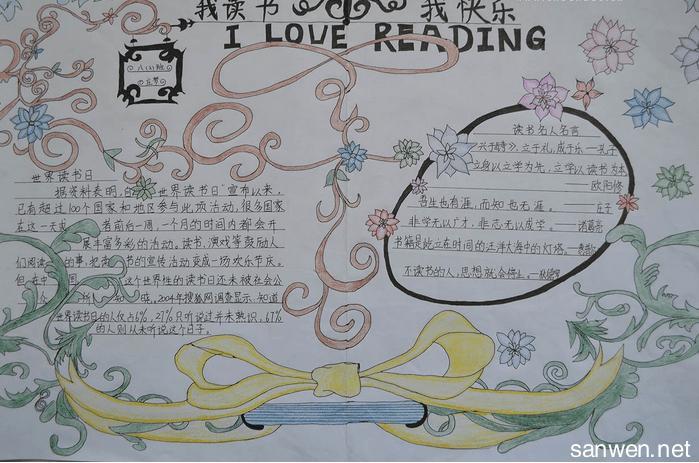 我读书 我快乐
I LOVE READING
八(2)班
世界读书日
据资料表明,自“世界读书日”宣布以来,
已有超过100个国家和地区参与此项活动,很多国家
在这一天或 者前后一周,一个月的时间内都会开
展丰富多彩的活动。读书、演戏等鼓励人
们阅读 的事,把 书的宣传活动变成一场欢乐节庆。
但 在中国 这个世界性的读书日还未被社会公
2004年搜狐网调查显示,知道
世界读书日的人仅占6%,27%只听说过并未熟识,67%
的人则从未听说这个日子。
读书名人名言
兴于诗,立于礼,成于乐 —孔子
立身以立学为先,立学以读书为本
——欧阳修
吾生也有涯,而知也无涯。——庄子
非学无以广才,非志无以成学。—诸葛亮
书籍是屹立在时间的汪洋大海中的灯塔。
不读书的人,思想就会停止。
sanwen.net